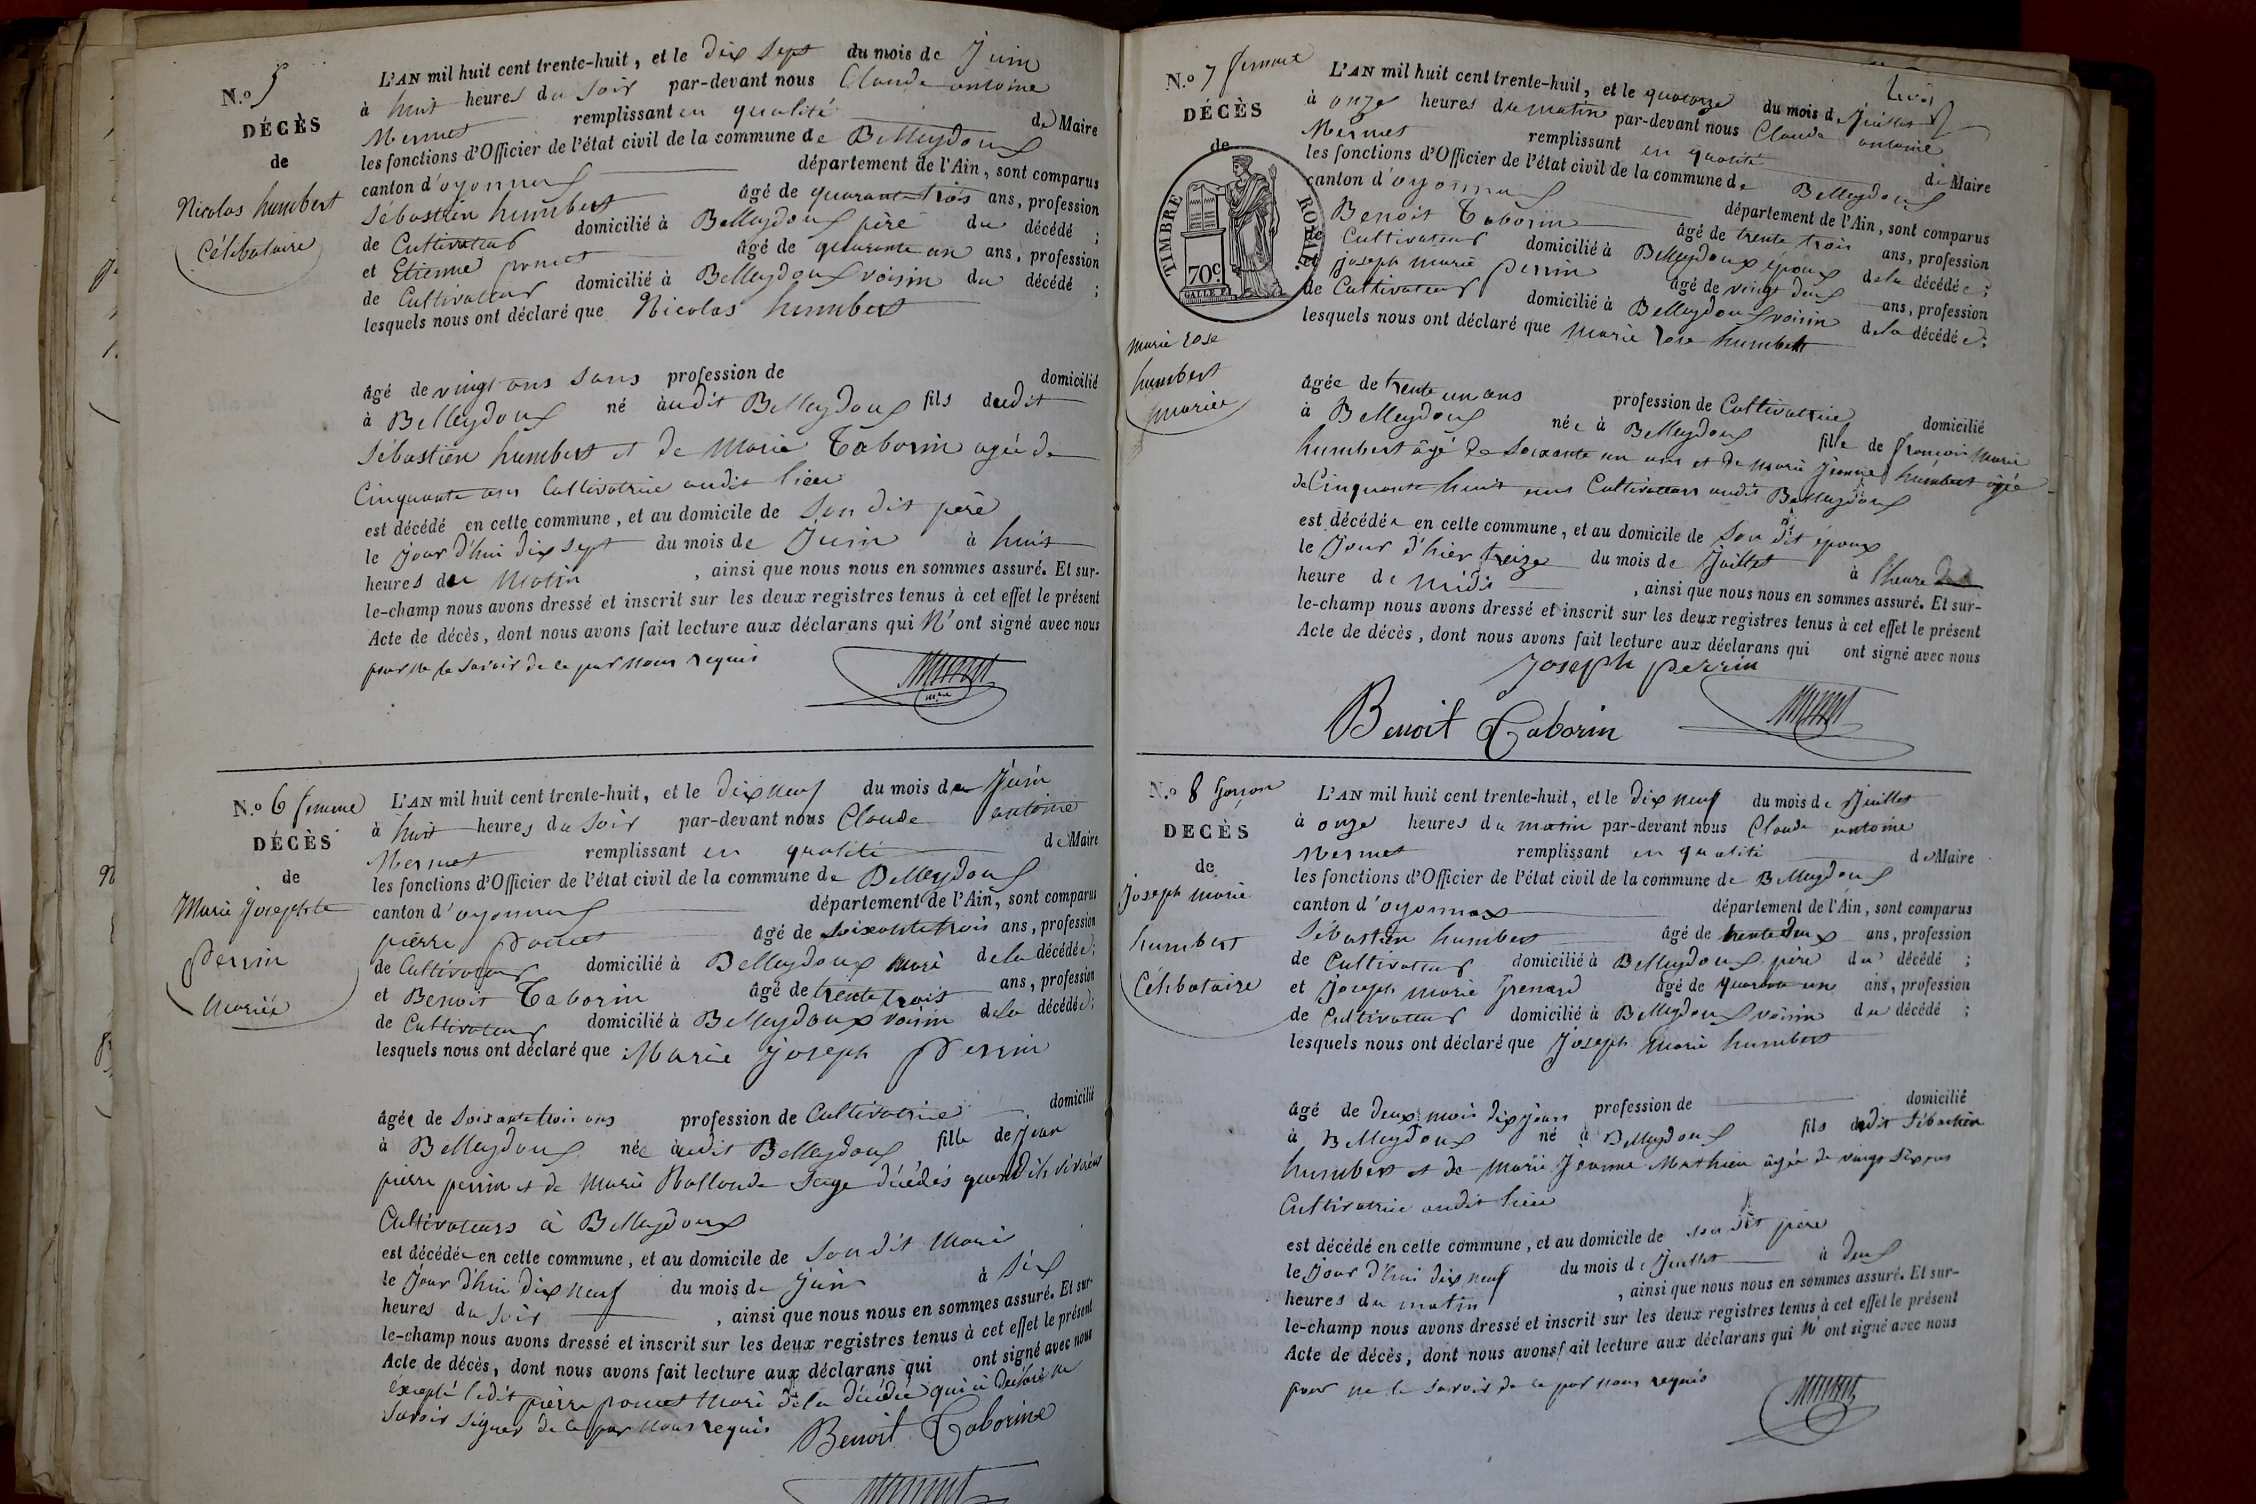 N.o 5
DÉCÈS
de
Nicolas humbert
Célibataire
L'AN mil huit cent trente-huit, et le dix sept du mois de Juin
à huit heures du soir par-devant nous Claude antoine
Mermet remplissant en qualité de Maire
les fonctions d'Officier de l'état civil de la commune de Belleydoux
canton d'oyonnax département de l'Ain, sont comparus
Sébastien humbert âgé de quarante trois ans, profession
de Cultivateur domicilié à Belleydoux père du décédé ;
et Etienne poncet âgé de quarante un ans, profession
de Cultivateur domicilié à Belleydoux voisin du décédé ;
lesquels nous ont déclaré que Nicolas humbert
âgé de vingt ans sans profession de domicilié
à Belleydoux né audit Belleydoux fils dudit
Sébastien humbert et de Marie Taborin agée de
Cinquante ans Cultivatrice audit lieu
est décédé en cette commune, et au domicile de son dit père
le jour d'hui dix sept du mois de Juin à huit
heures du Matin , ainsi que nous nous en sommes assuré. Et sur-
le-champ nous avons dressé et inscrit sur les deux registres tenus à cet effet le présent
Acte de décès, dont nous avons fait lecture aux déclarans qui N'ont signé avec nous
pour ne le savoir de ce par nous requis
Mermet
N.o 6 femme
DÉCÈS
de
Marie Josephte
Perrin
Mariée
L'AN mil huit cent trente-huit, et le dix neuf du mois de Juin
à huit heures du soir par-devant nous Claude antoine
Mermet remplissant en qualité de Maire
les fonctions d'Officier de l'état civil de la commune de Belleydoux
canton d'oyonnax département de l'Ain, sont comparus
pierre poncet âgé de soixante trois ans, profession
de Cultivateur domicilié à Belleydoux mari de la décédée ;
et Benoit Taborin âgé de trente trois ans, profession
de Cultivateur domicilié à Belleydoux voisin de la décédée ;
lesquels nous ont déclaré que Marie joseph Perrin
âgée de soixante trois ans profession de Cultivatrice domicilié
à Belleydoux née audit Belleydoux fille de Jean
pierre perrin et de Marie Rollande décédés quand ils vivaient
Cultivateurs à Belleydoux
est décédée en cette commune, et au domicile de son dit Mari
le jour d'hui dix neuf du mois de juin à six
heures du soir , ainsi que nous nous en sommes assuré. Et sur-
le-champ nous avons dressé et inscrit sur les deux registres tenus à cet effet le présent
Acte de décès, dont nous avons fait lecture aux déclarans qui ont signé avec nous
excepté ledit pierre poncet Mari de la décédée qui a déclaré ne
savoir signer de ce par nous requis
Benoit Taborin
N.o 7 femme
DÉCÈS
de
TIMBRE ROYAL.
70c.
marie rose
humbert
mariée
L'AN mil huit cent trente-huit, et le quatorze du mois de Juillet
à onze heures du matin par-devant nous Claude antoine
Mermet remplissant en qualité de Maire
les fonctions d'Officier de l'état civil de la commune de Belleydoux
canton d'oyonnax département de l'Ain, sont comparus
Benoit Taborin âgé de trente trois ans, profession
de Cultivateur domicilié à Belleydoux époux de la décédée ;
et joseph marie perrin âgé de vingt deux ans, profession
de Cultivateur domicilié à Belleydoux voisin de la décédée ;
lesquels nous ont déclaré que Marie rose humbert
âgée de trente un ans profession de Cultivatrice domicilié
à Belleydoux née à Belleydoux fille de françois marie
humbert âgé de soixante un ans et de marie jeanne humbert agée
de Cinquante huit ans Cultivateurs audit Belleydoux
est décédée en cette commune, et au domicile de son dit époux
le Jour d'hier treize du mois de Juillet à l'heure de
heure de midi , ainsi que nous nous en sommes assuré. Et sur-
le-champ nous avons dressé et inscrit sur les deux registres tenus à cet effet le présent
Acte de décès, dont nous avons fait lecture aux déclarans qui ont signé avec nous
joseph perrin
Benoit Taborin Mermet
N.o 8 garçon
DÉCÈS
de
joseph marie
humbert
Célibataire
L'AN mil huit cent trente-huit, et le dix neuf du mois de Juillet
à onze heures du matin par-devant nous Claude antoine
Mermet remplissant en qualité de Maire
les fonctions d'Officier de l'état civil de la commune de Belleydoux
canton d'oyonnax département de l'Ain, sont comparus
Sébastien humbert âgé de trente deux ans, profession
de Cultivateur domicilié à Belleydoux père du décédé ;
et joseph marie Grenard âgé de quarante un ans, profession
de Cultivateur domicilié à Belleydoux voisin du décédé ;
lesquels nous ont déclaré que joseph marie humbert
âgé de deux mois dix jours profession de domicilié
à Belleydoux né à Belleydoux fils dudit Sébastien
humbert et de marie jeanne Mathieu âgée de vingt six ans
Cultivatrice audit lieu
est décédé en cette commune, et au domicile de son dit père
le Jour d'hui dix neuf du mois de Juillet à deux
heures du matin , ainsi que nous nous en sommes assuré. Et sur-
le-champ nous avons dressé et inscrit sur les deux registres tenus à cet effet le présent
Acte de décès, dont nous avons fait lecture aux déclarans qui N'ont signé avec nous
pour ne le savoir de ce par nous requis
Mermet